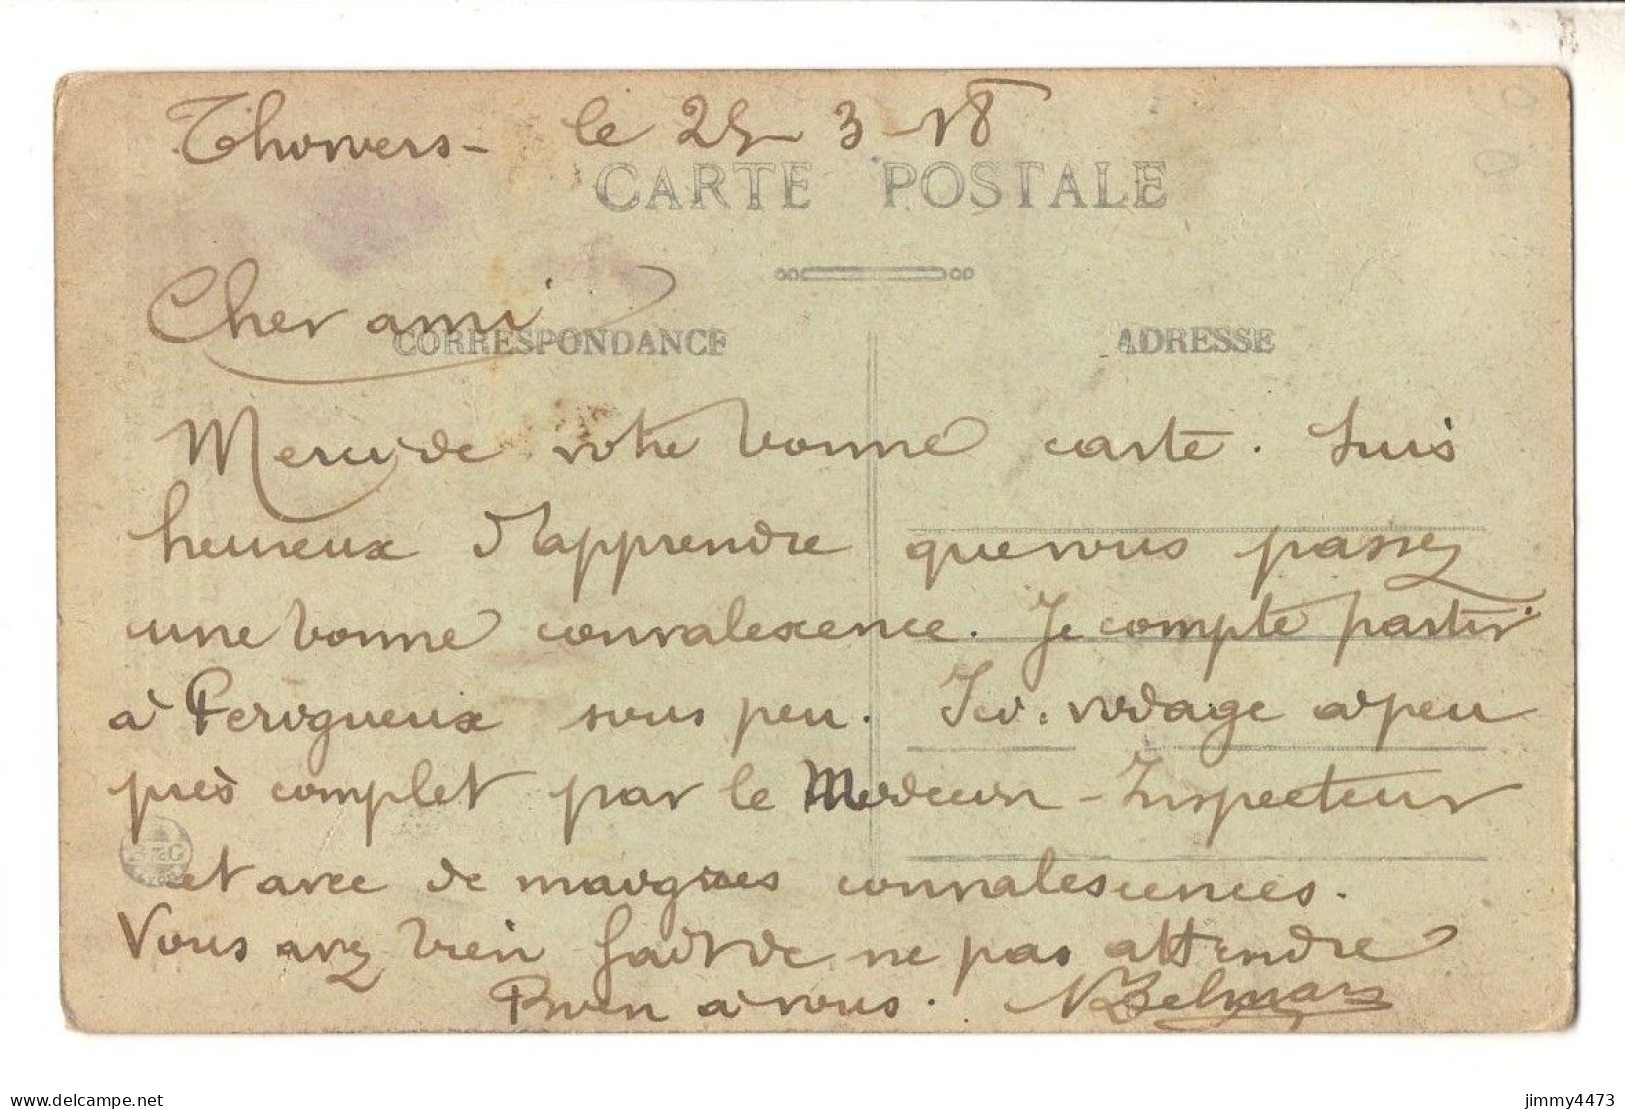 Thouars - le 25 - 3 - 18
CARTE POSTALE
Cher ami
CORRESPONDANCE
ADRESSE
Merci de votre bonne carte. Suis
heureux d'apprendre que vous passez
une bonne convalescence. Je compte partir
à Perigueux sous peu. Ici, vidage à peu
près complet par le Medecin - Inspecteur
et avec de maigres convalescences.
Vous avez bien fait de ne pas attendre
Bien à vous.
delcampe.net
jimmy4473